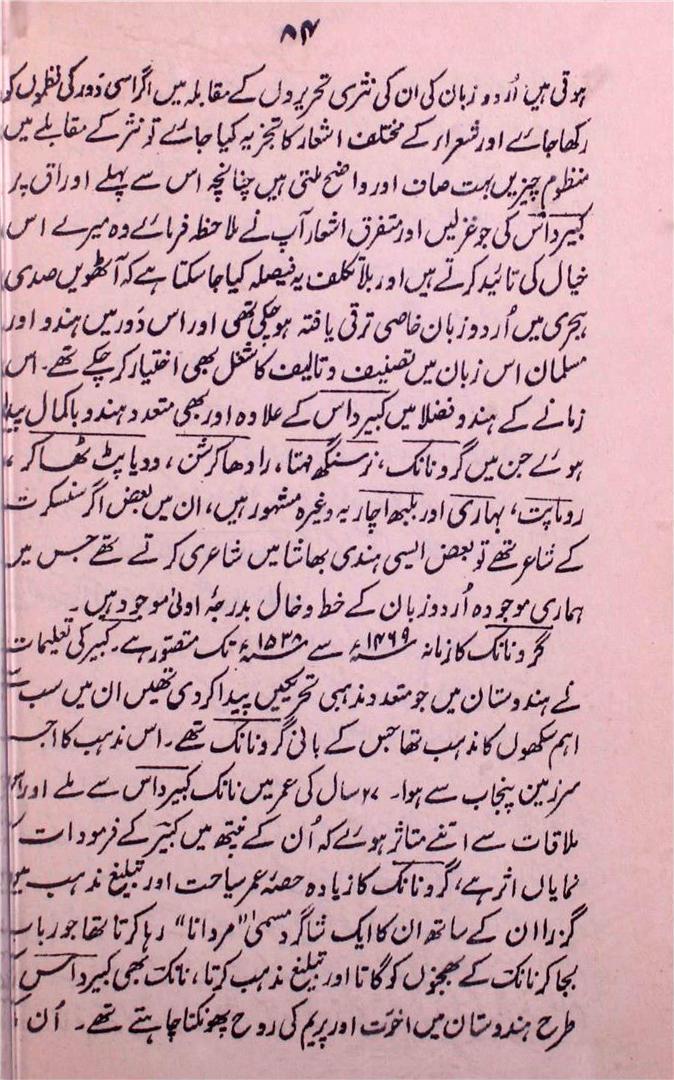 ۸۴
ہوتی ہیں اُردو زبان کی ان کی نثری تحریروں کے مقابلہ میں اگر اسی دَور کی نظموں کو
رکھا جائے اور شعراء کے مختلف اشعار کا تجزیہ کیا جائے تو نثر کے مقابلے میں
منظوم چیزیں بہت صاف اور واضح ملتی ہیں چنانچہ اس سے پہلے اوراق پر
کبیر داس کی جو غزلیں اور متفرق اشعار آپ نے ملاحظہ فرمائے وہ میرے اس
خیال کی تائید کرتے ہیں اور بلا تکلف یہ فیصلہ کیا جا سکتا ہے کہ آٹھویں صدی
ہجری میں اُردو زبان خاصی ترقی یافتہ ہو چکی تھی اور اس دَور میں ہندو اور
مسلمان اس زبان میں تصنیف و تالیف کا شغل بھی اختیار کر چکے تھے۔ اس
زمانے کے ہندو فضلا میں کبیر داس کے علاوہ اور بھی متعدد ہندو باکمال پیدا
ہوئے جن میں گرو نانک، نرسنگھ مہتا، رادھا کرشن، ودیا پٹ ٹھاکر،
روماپت، بہاری اور بلبھ اچاریہ وغیرہ مشہور ہیں، ان میں بعض اگر سنسکرت
کے شاعر تھے تو بعض ایسی ہندی بھاشا میں شاعری کرتے تھے جس میں
ہماری موجودہ اُردو زبان کے خط و خال بدرجۂ اولیٰ موجود ہیں۔
گرو نانک کا زمانہ ۱۴۶۹ء سے ۱۵۳۸ء تک متصوّر ہے۔ کبیر کی تعلیمات
نے ہندوستان میں جو متعدد مذہبی تحریکیں پیدا کر دی تھیں ان میں سب سے
اہم سکھوں کا مذہب تھا جس کے بانی گرو نانک تھے۔ اس مذہب کا
سرزمین پنجاب سے ہوا۔ ۲۷ سال کی عمر میں نانک کبیر داس سے ملے اور اس
ملاقات سے اتنے متاثر ہوئے کہ اُن کے گیتھ میں کبیر کے فرمودات کا
نمایاں اثر ہے، گرو نانک کا زیادہ حصۂ عمر سیاحت اور تبلیغ مذہب میں
گزرا ان کے ساتھ ان کا ایک شاگرد مسمیٰ "مردانا" رہا کرتا تھا جو رباب
بجا کر نانک کے بھجنوں کو گاتا اور تبلیغ مذہب کرتا، نانک بھی کبیر داس کی
طرح ہندوستان میں اخوّت اور پریم کی روح پھونکنا چاہتے تھے۔ اُن